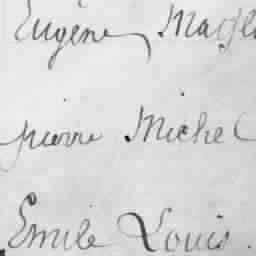 Eugène
pierre Michel
Emile Louis.